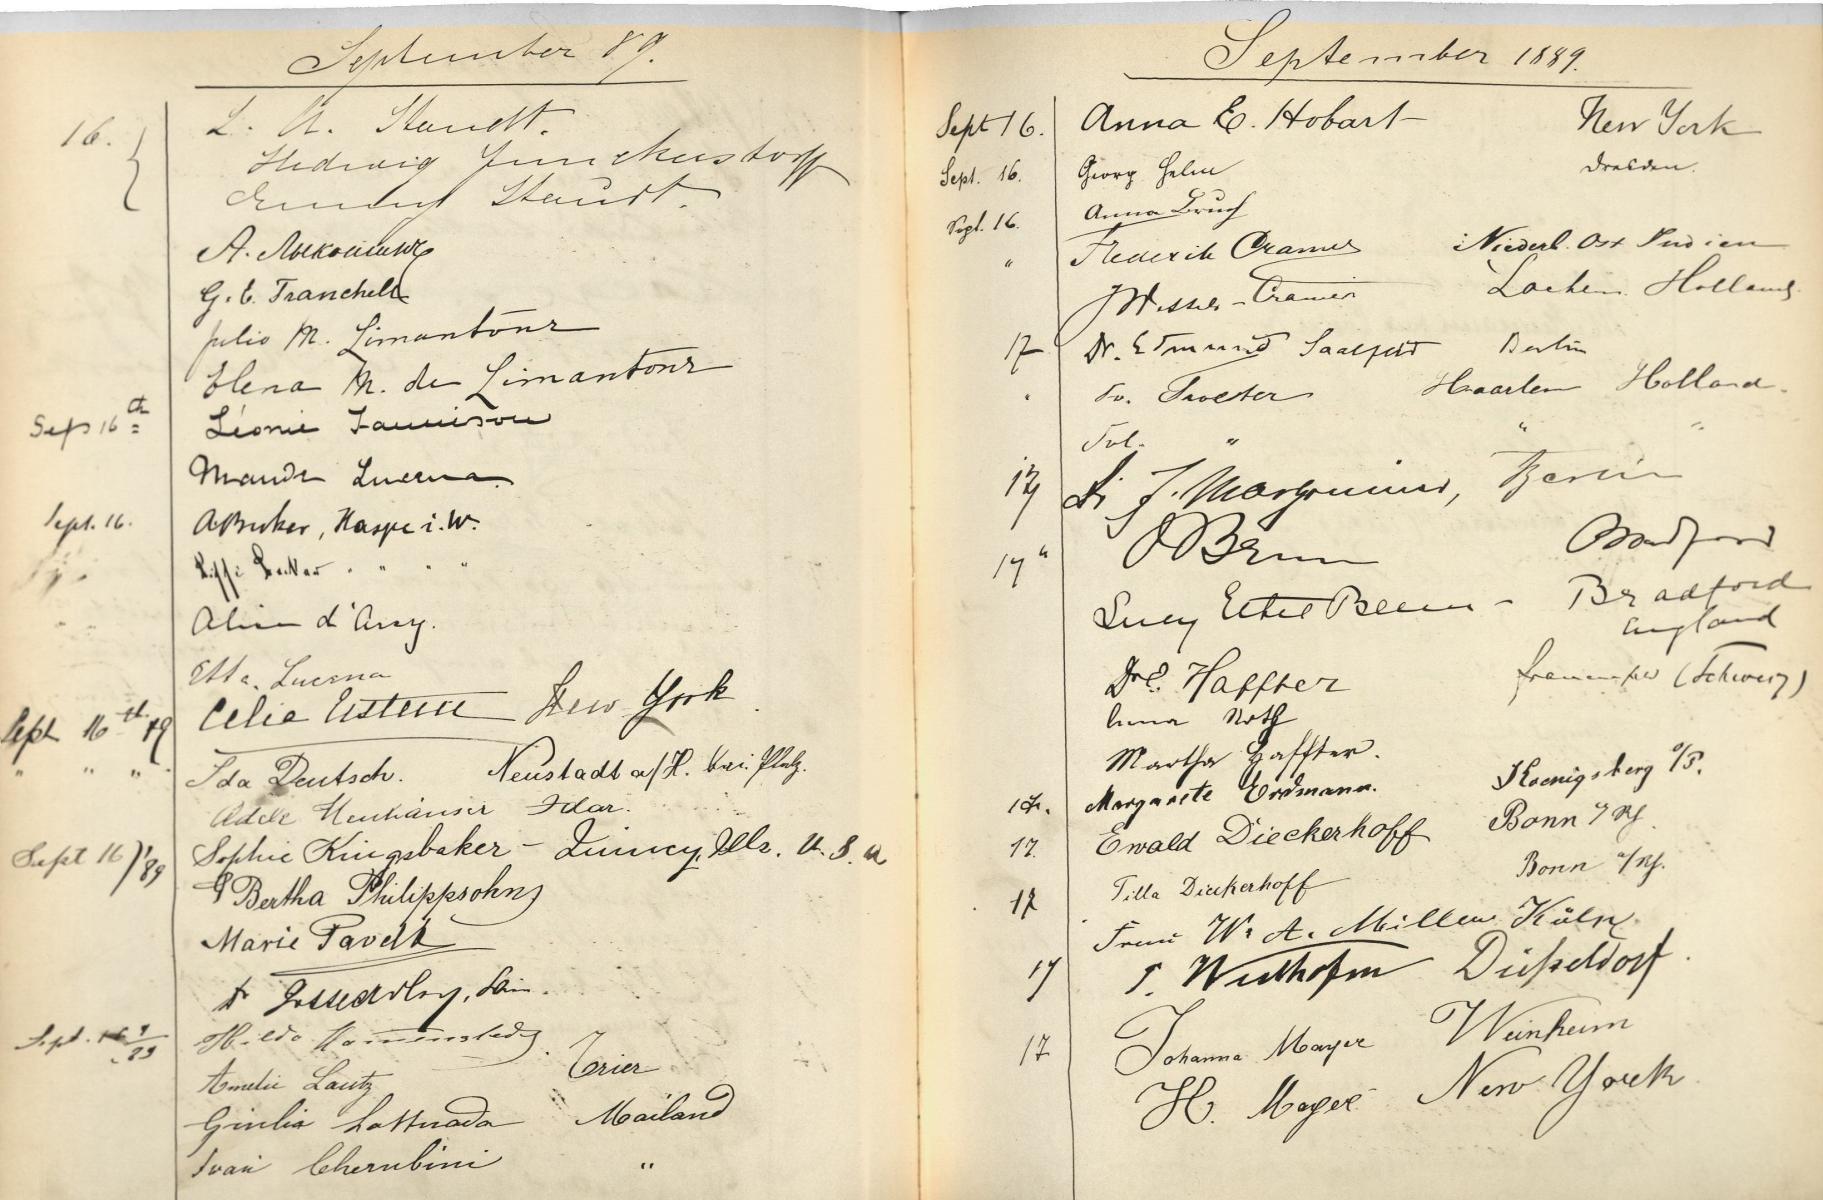 September 89.
16. L. A. Staudt.
Hedwig Junckerstorff
Emmy Staudt.
A.
G. E. Tranchell
Julio M. Limantour
Elena M. de Limantour
Sept 16th Léonie Jamison
Maude Lucerna
Sept. 16. A. Becker, Haspe i. W.
" " " "
d'Arcy.
Etta. Lucerna
Sept 16th 89 Celia New York
" " " Ida Deutsch. Neustadt a/H. Pfalz.
Adele Neuhäuser Idar.
Sept 16/'89 Sophie Kingsbaker - Quincy, Ills. U. S. A
Bertha Philippsohn
Marie
Dr
Sept. 16 89 Hilda
Amelie Lautz Trier
Giulia Lattuada Mailand
Ivan Cherubini "
September 1889.
Sept 16. Anna E. Hobart New York
Sept. 16. Georg Helm Dresden.
Sept. 16. Anna Bruch
" Frederik Cramer Niederl. Ost Indien
Cramer Lochem Holland.
17 Dr. Edmund Saalfeld Berlin
" Haarlem Holland.
" " "
17 Dr J. Berlin
17 " Bradford
Lucy Ethel - Bradford
England
Dr E. Haffter (Schweiz)
Anna Roth
Martha Haffter.
17. Margarete Erdmann. Koenigsberg o/P.
17. Ewald Dieckerhoff Bonn a/Rh.
17 Tilla Dieckerhoff Bonn a/Rh.
Frau W. A. Millen Köln
17 Düsseldorf.
17 Johanna Mayer Weinheim
H. Mayer New Yorck